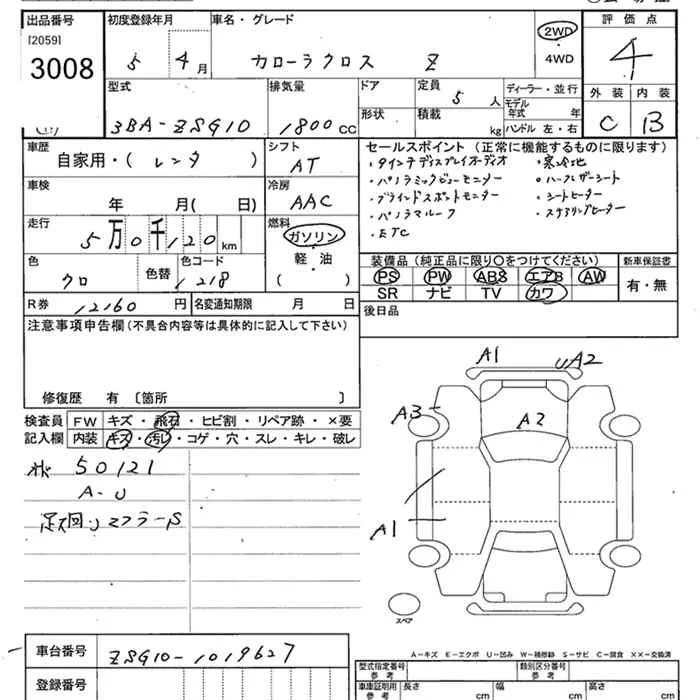 出品番号 初度登録年月 車名・グレード 評価点
[2059] 5 4月 カローラクロス Z 2WD 4WD 4
3008
型式 排気量 ドア 定員 ディーラー・並行 外装 内装
3BA-ZSG10 1800CC 5人 モデル年式 年 C B
形状 積載 kg ハンドル 左・右
車歴 シフト セールスポイント(正常に機能するものに限ります)
自家用・(レンタ) AT ・9インチディスプレイオーディオ ・寒冷地
車検 冷房 ・パノラミックビューモニター ・ハーフレザーシート
年 月(日) AAC ・ブラインドスポットモニター ・シートヒーター
走行 燃料 ・パノラマルーフ ・ステアリングヒーター
5万0千120km ガソリン ・ETC
軽・油
色 色替 色コード ( ) 装備品(純正品に限り○をつけてください) 新車保証書
クロ 1218 PS PW ABS エアB AW 有・無
SR ナビ TV カワ
R券 12160円 名変通知期限 月 日 後日品
注意事項申告欄(不具合内容等は具体的に記入して下さい)
修復歴 有 〔箇所 〕
検査員 FW キズ・飛石・ヒビ割・リペア跡・×要
記入欄 内装 キズ・汚レ・コゲ・穴・スレ・キレ・破レ
50121
A-U
A1 UA2
A3 A2
A1
スペア
A-キズ E-エクボ U-凹み W-補修跡 S-サビ C-腐食 XX-交換済
車台番号 ZSG10-1019627
登録番号
型式指定番号 参考 類別区分番号 参考
車庫証明用 参考 長さ cm 幅 cm 高さ cm